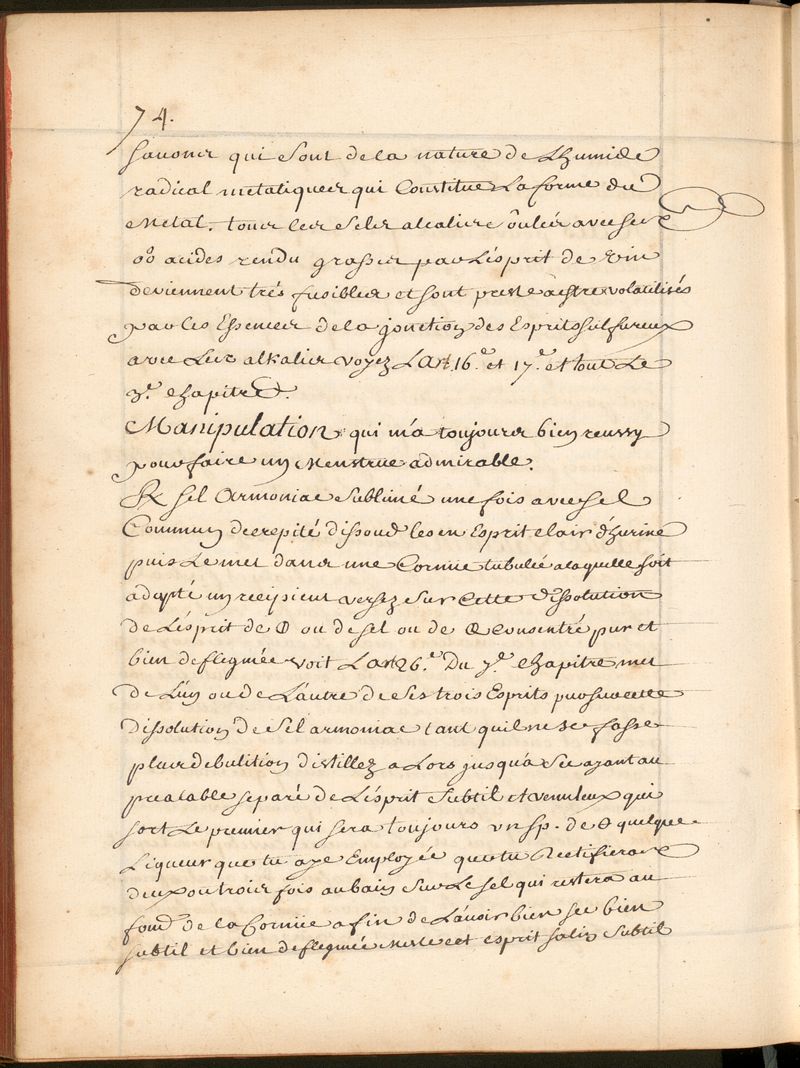 74.
savons qui sont de la nature de Lhumide
radical metaliques qui Constitue La forme du
Metal. tous les sels alcalis oules avec ses
acides rendu grassis par Lésprit de vin
deviennent trés fusibles et sont preste a estre volatilisés
par les Essences de la jonction des Esprits sulfureux
avec Leurs alkalis voyez L'Art. 16.e et 17.e et tout Le
3.e chapitre.
Manipulation qui m'a toujours bien reussy
pour faire un Menstrue admirable.
℞ sel Armoniac sublimé une fois avec sel
Commun decrepité dissoud les en Esprit clair d'hurine
puis Le met dans une Cornue tubulée a laquelle soit
adapté un recipient versez sur Cette dissolution
de Lésprit de ou de sel ou de Consentré pur et
bien deflegmée voit L'art 26.e Du 7.e chapitre met
de L'un ou de Láutre de ses trois Esprits sur cette
dissolution de sel armoniac tant quil ne se fasse
plus débulition distillez a Lors jusqu'a sec ayant au
prealable separé de Lésprit subtil et venuleux qui
sort Le premier qui sera toujours un sp. de quelque
Liqueur que tu aye Employée que tu Rectifieras
deux ou trois fois au bain sur Le sel qui restera au
fond de la Cornue afin de Láuoir bien sec bien
subtil et bien deflegmée Mesle cet esprit salin subtil